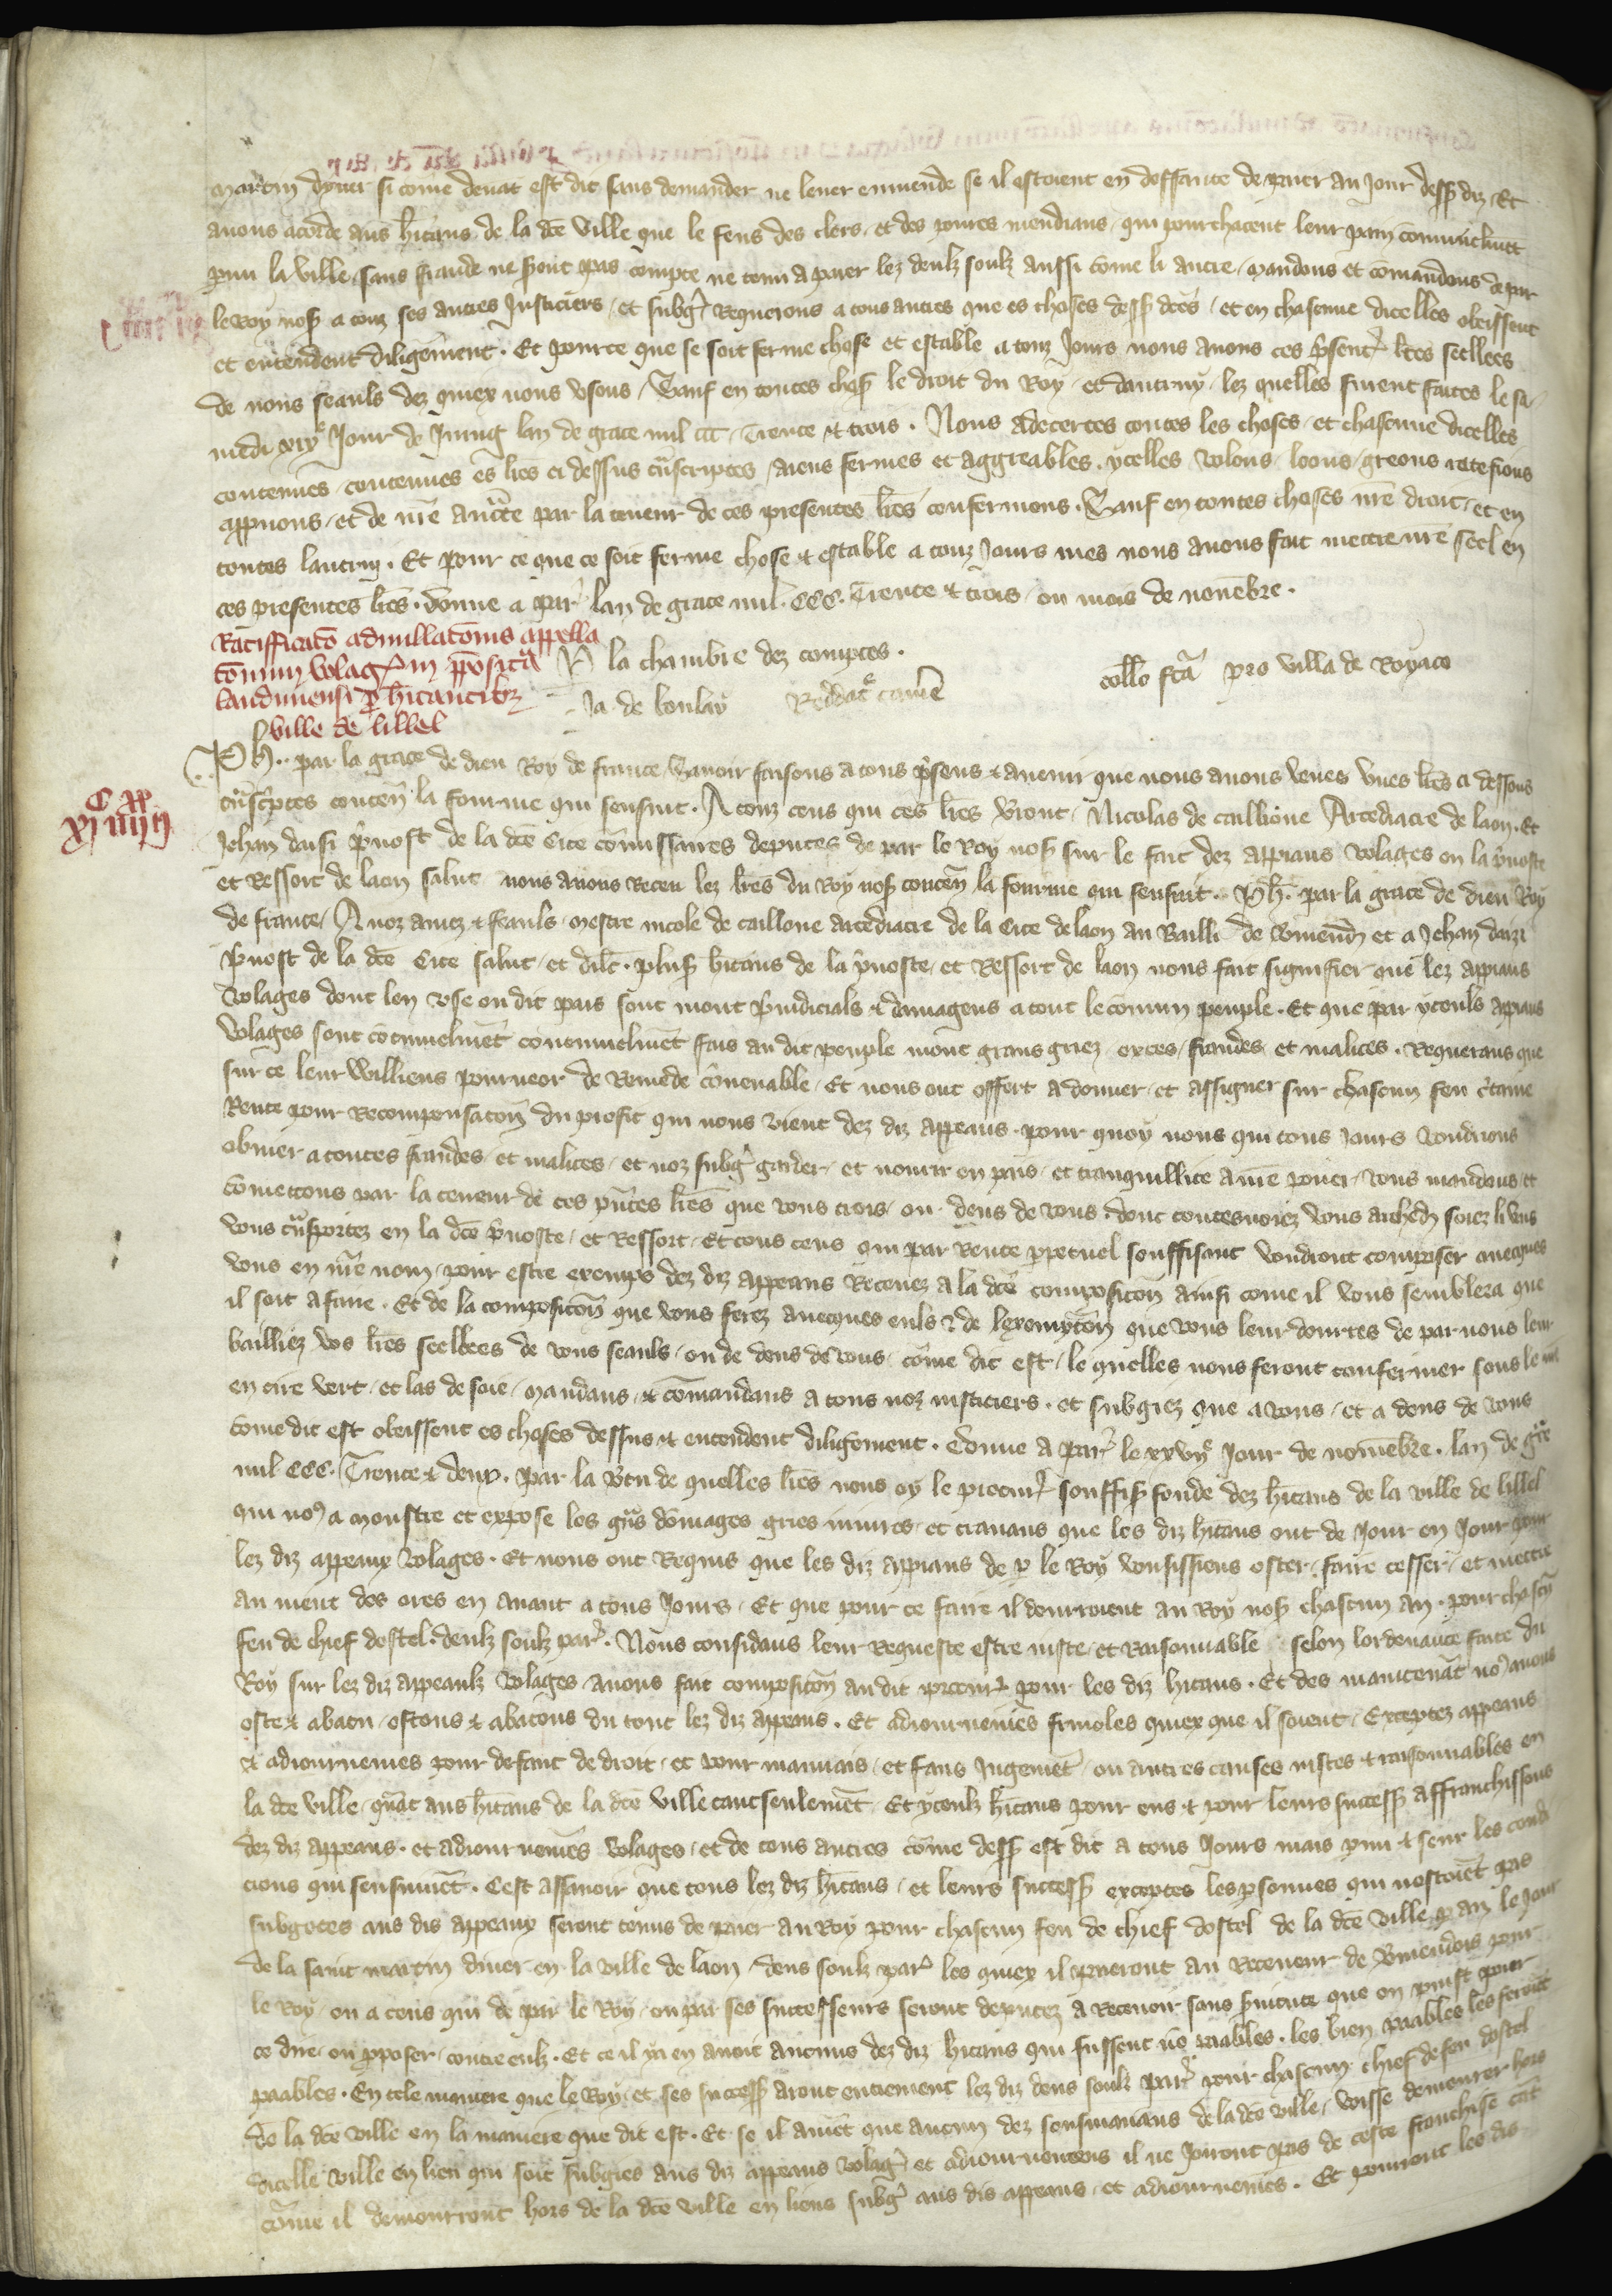 martin dyuer si come deuat est dit sans demander ne leuer emende se il estoient en deffaute de paier au Jour dess diz Et
auons acorde aus hitans de la dce ville que le feus des clers et des poures mendians qui pourchacent leur pain comunelmet
pmi la ville sans fraude ne sont pas compte ne tenu a paier lez deulz soulz aussi come li autre mandons et comandons de par
le Roy nos a touz ses autres Justiciers et subg Requerons a tous autres que es choses dess dces et en chascune dicelles obeissent
et entendent diligement. Et pource que se soit ferme chose et estable a touz Jours nous auons ces psent lres seellees
de nous seauls dez quiex nous vsons Sauf en toutes chos le droit du Roy et dautruy lez quelles furent faites le sa
medi xix Jour de Juing lan de grace mil ccc Trente et trois. Nous adecertes toutes les choses et chascune dicelles
contenues contenues es lres ci dessus trascriptes aiens fermes et aggreables ycelles volons loons greons ratefions
appuons et de nre aucte par la teneur de ces presentes lres confermons. Sauf en toutes choses nre droit et en
toutes lautruy. Et pour ce que ce soit ferme chose et estable a touz Jours mes nous auons fait mettre nre seel en
ces presentes lres. donne a par lan de grace mil. ccc. Trente et trois ou mois de nouebre.
Ratifficato adnullatonis appella
tonum volag in pposita
laudunensi p hitantibz
ville de lillel
P la chambre dez comptes.
Ja de boulay Reddat came
collo fca pro villa de Royaco
Ph. par la grace de dieu Roy de france Sauoir faisons a tous psens et auenir que nous auons veues vnes lres ci dessous
trascptes conten la fourme qui sensuit. A touz ceus qui ces lres vront Nicolas de caillione Arcediacre de laon. Et
Jehan daisi puost de la dce Cite comissaires deputes de par le Roy nos sur le fait dez appiaus volages en la puoste
et Ressort de laon salut nous auons Receu lez lres du Roy nos conten la fourme qui sensuit. Ph. par la grace de dieu Roy
de france A noz amez et feauls mestre nicole de cailloue arcediacre de la Cite de laon au Bailli de vmend et a Jehan daizi
puost de la dce Cite salut et dilc. plus hitans de la puoste et Ressort de laon nous fait signifier que lez appiaus
volages dont len vse ou dit pais sont mout piudicials et damageus a tout le comun peuple. Et que par yceuls appiaus
volages sont cotinuelmet continuelmet fais au dit peuple mout grans griez exces fraudes et malices. Requerans que
sur ce leur williens pourueor de Remede couenable Et nous ont offert a donner et assigner sur chascun feu ctaine
Rente pour Recompensacon du profit qui nous vient dez diz appeaus pour quoy nous qui tous Jours voudrions
obuier a toutes fraudes et malices et noz subg garder et nourir en pais et tranquillite a nre pouer vous mandons et
cometrons par la teneur de ces pntes lres que vous trois ou deus de vous dont toutesuoiez vous arched soiez li vns
vous trasportez en la dce puoste et Ressort Et tous ceus qui par Rente ppetuel souffisant voudront composer auecques
vous en nre nom pour estre exemps dez diz appeaus Receuez a la dce composicon ainsi come il vous semblera que
il soit a faire. Et de la composicon que vous ferez auecques euls et de lexempton que vous leur dourres de par nous leur
bailliez vos lres seellees de vous seauls ou de deus de vous come dit est le quelles nous feront confermer sous le nre
en cire vert et las de soie mandans et comandans a tous noz iusticiers et subgiez que a vous et a deus de vous
come dit est obeissent es choses dessus et entendent diligement. Donne a par le xxvij Jour de nouembre. lan de gre
mil ccc. Trente et deux. par la vtu de quelles lres nous oy le procur souffis fonde dez hitans de la ville de lillel
qui nos a monstre et expose les gns domages gries iniures et trauaus que les diz hitans ont de Jour en Jour pour
lez diz appeaux volages. Et nous ont Requis que les diz appiaus de p le Roy vousissiens oster faire cesser et mettre
au nient des ores en auant a tous Jours Et que pour ce faire il donroient au Roy nos chascun an. pour chascun
feu de chief dostel. deulz soulz par. Nous considans leur Requeste estre iuste et Raisonnable selon lordenance faite du
Roy sur lez diz appeaulz volages auons fait composicon au dit procur pour les diz hitans. Et des maintenat nos auons
oste et abatu ostons et abatons du tout lez diz appeaus. Et adiournemes friuoles quiex que il soient Exceptez appeaus
et adiournemes pour defaut de droit et pour mauuais et faus Jugemet ou autres causes iustes et raisonnables en
la dce ville quat aus hitans de la dce ville tant seulemet Et yceulz hitans pour eus et pour leurs success affranchissons
dez diz appeaus. et adiournemes volages et de tous autres come dess est dit a tous Jours mais pmi et seur les condi
cions qui sensuiuet. Cest assauoir que tous lez diz hitans et leurs success exceptes les psonnes qui nestoiet pas
subgetes aus dis appeaux seront tenus de paier au Roy pour chascun feu de chief dostel de la dce ville p an le Jour
de la saint martin diuer en la ville de laon deus soulz par les quiex il paieront au Receueur de vmendois pour
le Roy ou a ceus qui de par le Roy ou par ses successeurs seront deputez a Receuoir sans piudice que on puist pour
ce dire ou pposer contre eulz. Et ce il ya en auoit aucuns dez diz hitans qui fussent no paables. les bien paables les feront
paables. En tele maniere que le Roy et ses success aront entierement lez diz deus soulz par pour chascun chief de feu dostel
de la dce ville en la maniere que dit est. Et se il auiet que aucun dez sousmanans de la dce ville voisse demourer hors
dicelle ville en lieu qui soit subgies aus diz appeaus volag et adiournemens il ne Joiront pas de ceste franchise tat
come il demourront hors de la dce ville en lieus subg aus dis appeaus et adiournemes. Et pourront les dis